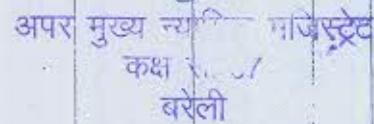 अपर मुख्य मजिस्ट्रेट
कक्ष
बरेली